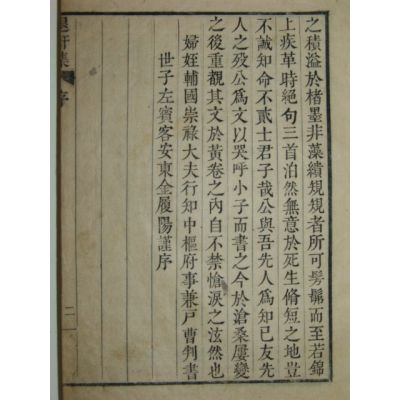 之積溢於楮墨非藻繢規規者所可髣髴而至若錦
上疾革時絕句三首泊然無意於死生脩短之地豈
不誠知命不貳士君子哉公與吾先人爲知己友先
人之歿公爲文以哭呼小子而書之今於滄桑屢變
之後重觀其文於黃卷之內自不禁愴淚之泫然也
婦姪輔國崇祿大夫行知中樞府事兼戶曹判書
世子左賓客安東金履陽謹序
軒集
序
二